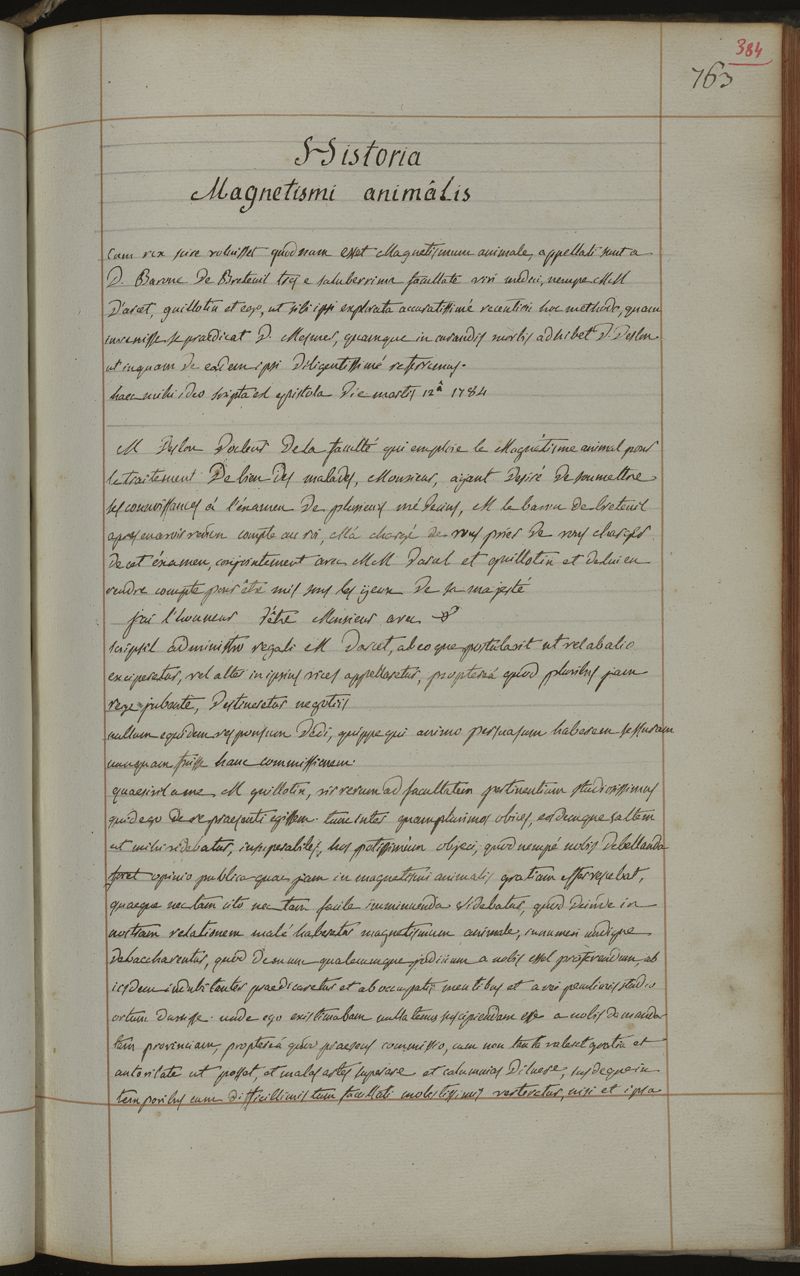 384
763
Historia
Magnetismi animâlis
Cum rex scire voluisset quodnam esset Magnetismum animale, appellati sunt a
D. Barone De Breteuil tres e saluberrima facultate viri medici, nempe MM
D'arcet, guillotin et ego, ut sibi ipsi explorata accuratissimé recentiori hoc methodo, quam
invenisse se praedicat D. Mesmer, quamque in curandis morbis adhibet D. Deslon
ut inquam de eadem ipsi Diligentissimé referremus.
haec mihi ideo scripta est epistola Die martis 12â 1784
M Deslon Docteur De la faculté qui emploie le Magnétisme animal pour
le traitement De bien Des malades, Monsieur, ayant Desiré De soumettre
ses connoissances á l'éxamen De plusieurs médecins, M le baron de breteuil
apres en avoir rendu compte au roi, M'a chargé de vous prier De vous charger
De cet éxamen, conjointement avec MM Darcet et guillotin et De lui en
rendre compte pour être mis sous les yeux De sa majesté
j'ai l'honneur D'être Monsieur avec &
scripsit administro regali M Darcet, ab eo que postulavit ut vel ab alio
exciperetur, vel alter in ipsius vices appellaretur, proptereá quod pluribus jam
rege jubente, Destineretur negotiis
nullum equidem responsum Dedi, quippe qui animo persuasum haberem sessuram
unquam fuisse hanc commissionem.
quaesivit a me M guillotin, vir rerum ad facultatem pertinentium studiosissimus
quid ego De re praesenti egissem. tunc inter quamplurimos obices, eosdemque saltem
ut mihi videbatur, insuperabiles, hos potissimùm objeci, quod nempé nobis debellanda
foret opinio publica quae jam in magnetismi animalis gratiam effervescebat,
quaeque nec tam cito nec tam facile imminuenda videbatur, quod Deinde in
nostram relationem malé haberetur magnetismum animale, innumeri undique
Debaccharentur, quod Demum qualecumque judicium a nobis esset proferendum, ab
iisdem indubitanter praedicaretur et ab occupatis mentibus et a rei peculioris studio
ortum Duxisse. unde ego existimabam nullatenus suscipiendam esse a nobis Demanda
tam provinciam, proptereá quod praesens commissio, cum non tanta valeret gratia et
autoritate ut posset, et malas artes superare et calumnias Diluere, iisdem que in
temporibus cum difficillimis tum facultati molestissimis verteretur, nisi et ipsa